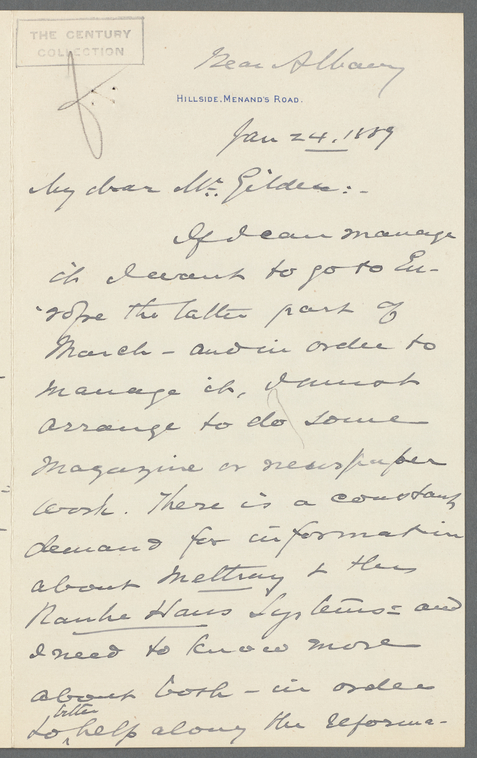 THE CENTURY
COLLECTION
Near Albany
HILLSIDE, MENAND'S ROAD.
Jan 24, 1889
My dear Mr. Gilder:-
If I can manage
it I want to go to Eu-
rope the latter part of
March - and in order to
manage it, I must
arrange to do some
magazine or newspaper
work. There is a constant
demand for information
about Mettray & the
Rauhe Haus Systems= and
I need to know more
about both - in order
to better help along the Reforma-